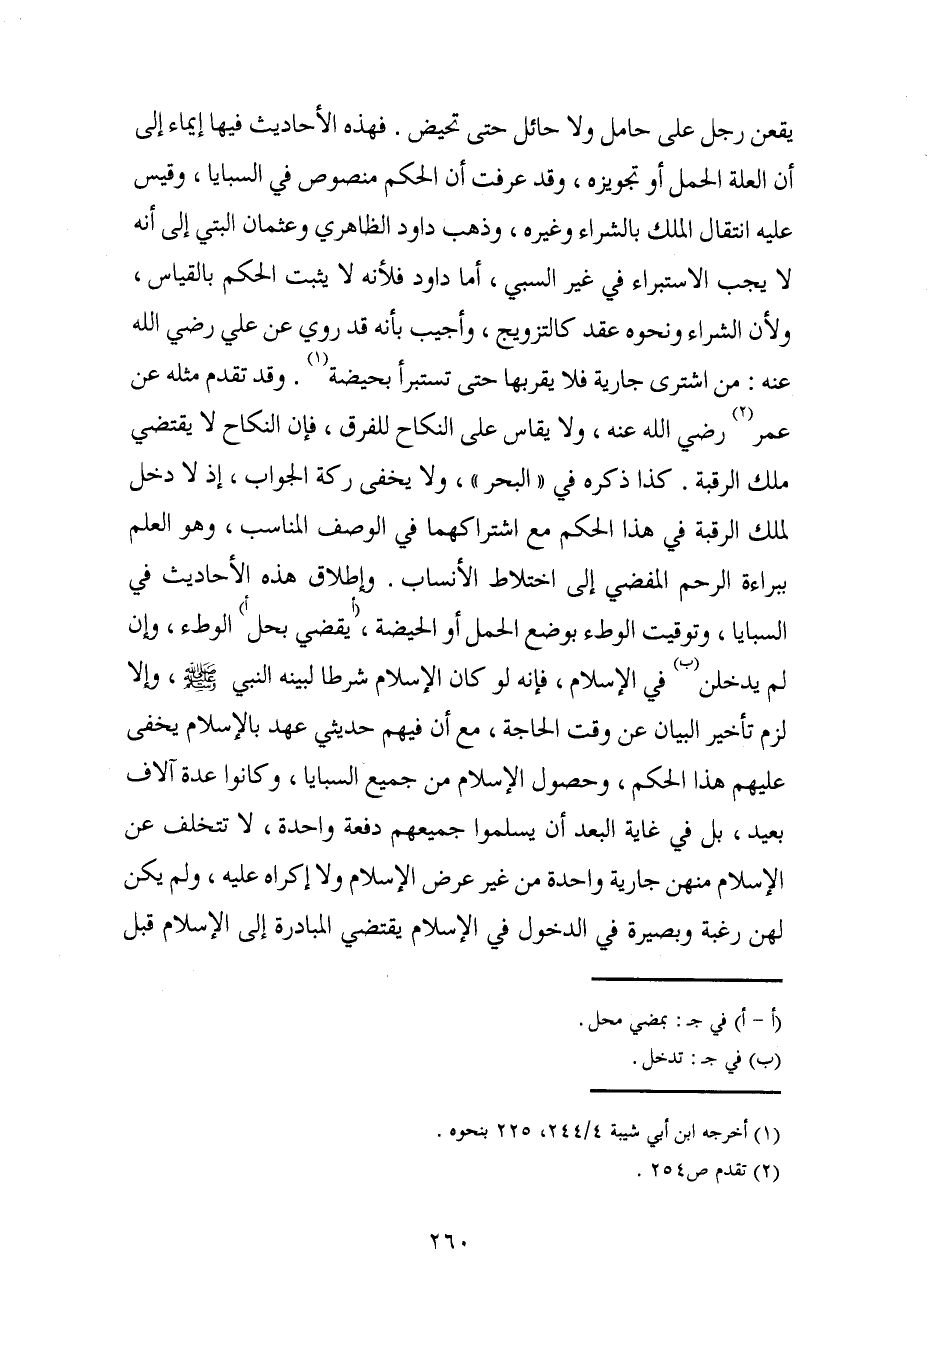 يقعن رجل على حامل ولا حائل حتى تحيض . فهذه الأحاديث فيها إيماء إلى
أن العلة الحمل أو تجويزه ، وقد عرفت أن الحكم منصوص في السبايا ، وقيس
عليه انتقال الملك بالشراء وغيره ، وذهب داود الظاهري وعثمان البتي إلى أنه
لا يجب الاستبراء في غير السبي ، أما داود فلأنه لا يثبت الحكم بالقياس ،
ولأن الشراء ونحوه عقد كالتزويج ، وأجيب بأنه قد روي عن علي رضي الله
عنه : من اشترى جارية فلا يقربها حتى تستبرأ بحيضة(١) . وقد تقدم مثله عن
عمر(٢) رضي الله عنه ، ولا يقاس على النكاح للفرق ، فإن النكاح لا يقتضي
ملك الرقبة . كذا ذكره في « البحر » ، ولا يخفى ركة الجواب ، إذ لا دخل
لملك الرقبة في هذا الحكم مع اشتراكهما في الوصف المناسب ، وهو العلم
ببراءة الرحم المفضي إلى اختلاط الأنساب . وإطلاق هذه الأحاديث في
السبايا ، وتوقيت الوطء بوضع الحمل أو الحيضة ، (أيقضي بحلأ) الوطء ، وإن
لم يدخلن(ب) في الإسلام ، فإنه لو كان الإسلام شرطا لبينه النبي ﷺ ، وإلا
لزم تأخير البيان عن وقت الحاجة ، مع أن فيهم حديثي عهد بالإسلام يخفى
عليهم هذا الحكم ، وحصول الإسلام من جميع السبايا ، وكانوا عدة آلاف
بعيد ، بل في غاية البعد أن يسلموا جميعهم دفعة واحدة ، لا تتخلف عن
الإسلام منهن جارية واحدة من غير عرض الإسلام ولا إكراه عليه ، ولم يكن
لهن رغبة وبصيرة في الدخول في الإسلام يقتضي المبادرة إلى الإسلام قبل
(أ - أ) في جـ : بمضي محل .
(ب) في جـ : تدخل .
(١) أخرجه ابن أبي شيبة ٢٤٤/٤، ٢٢٥ بنحوه .
(٢) تقدم ص٢٥٤ .
٢٦٠